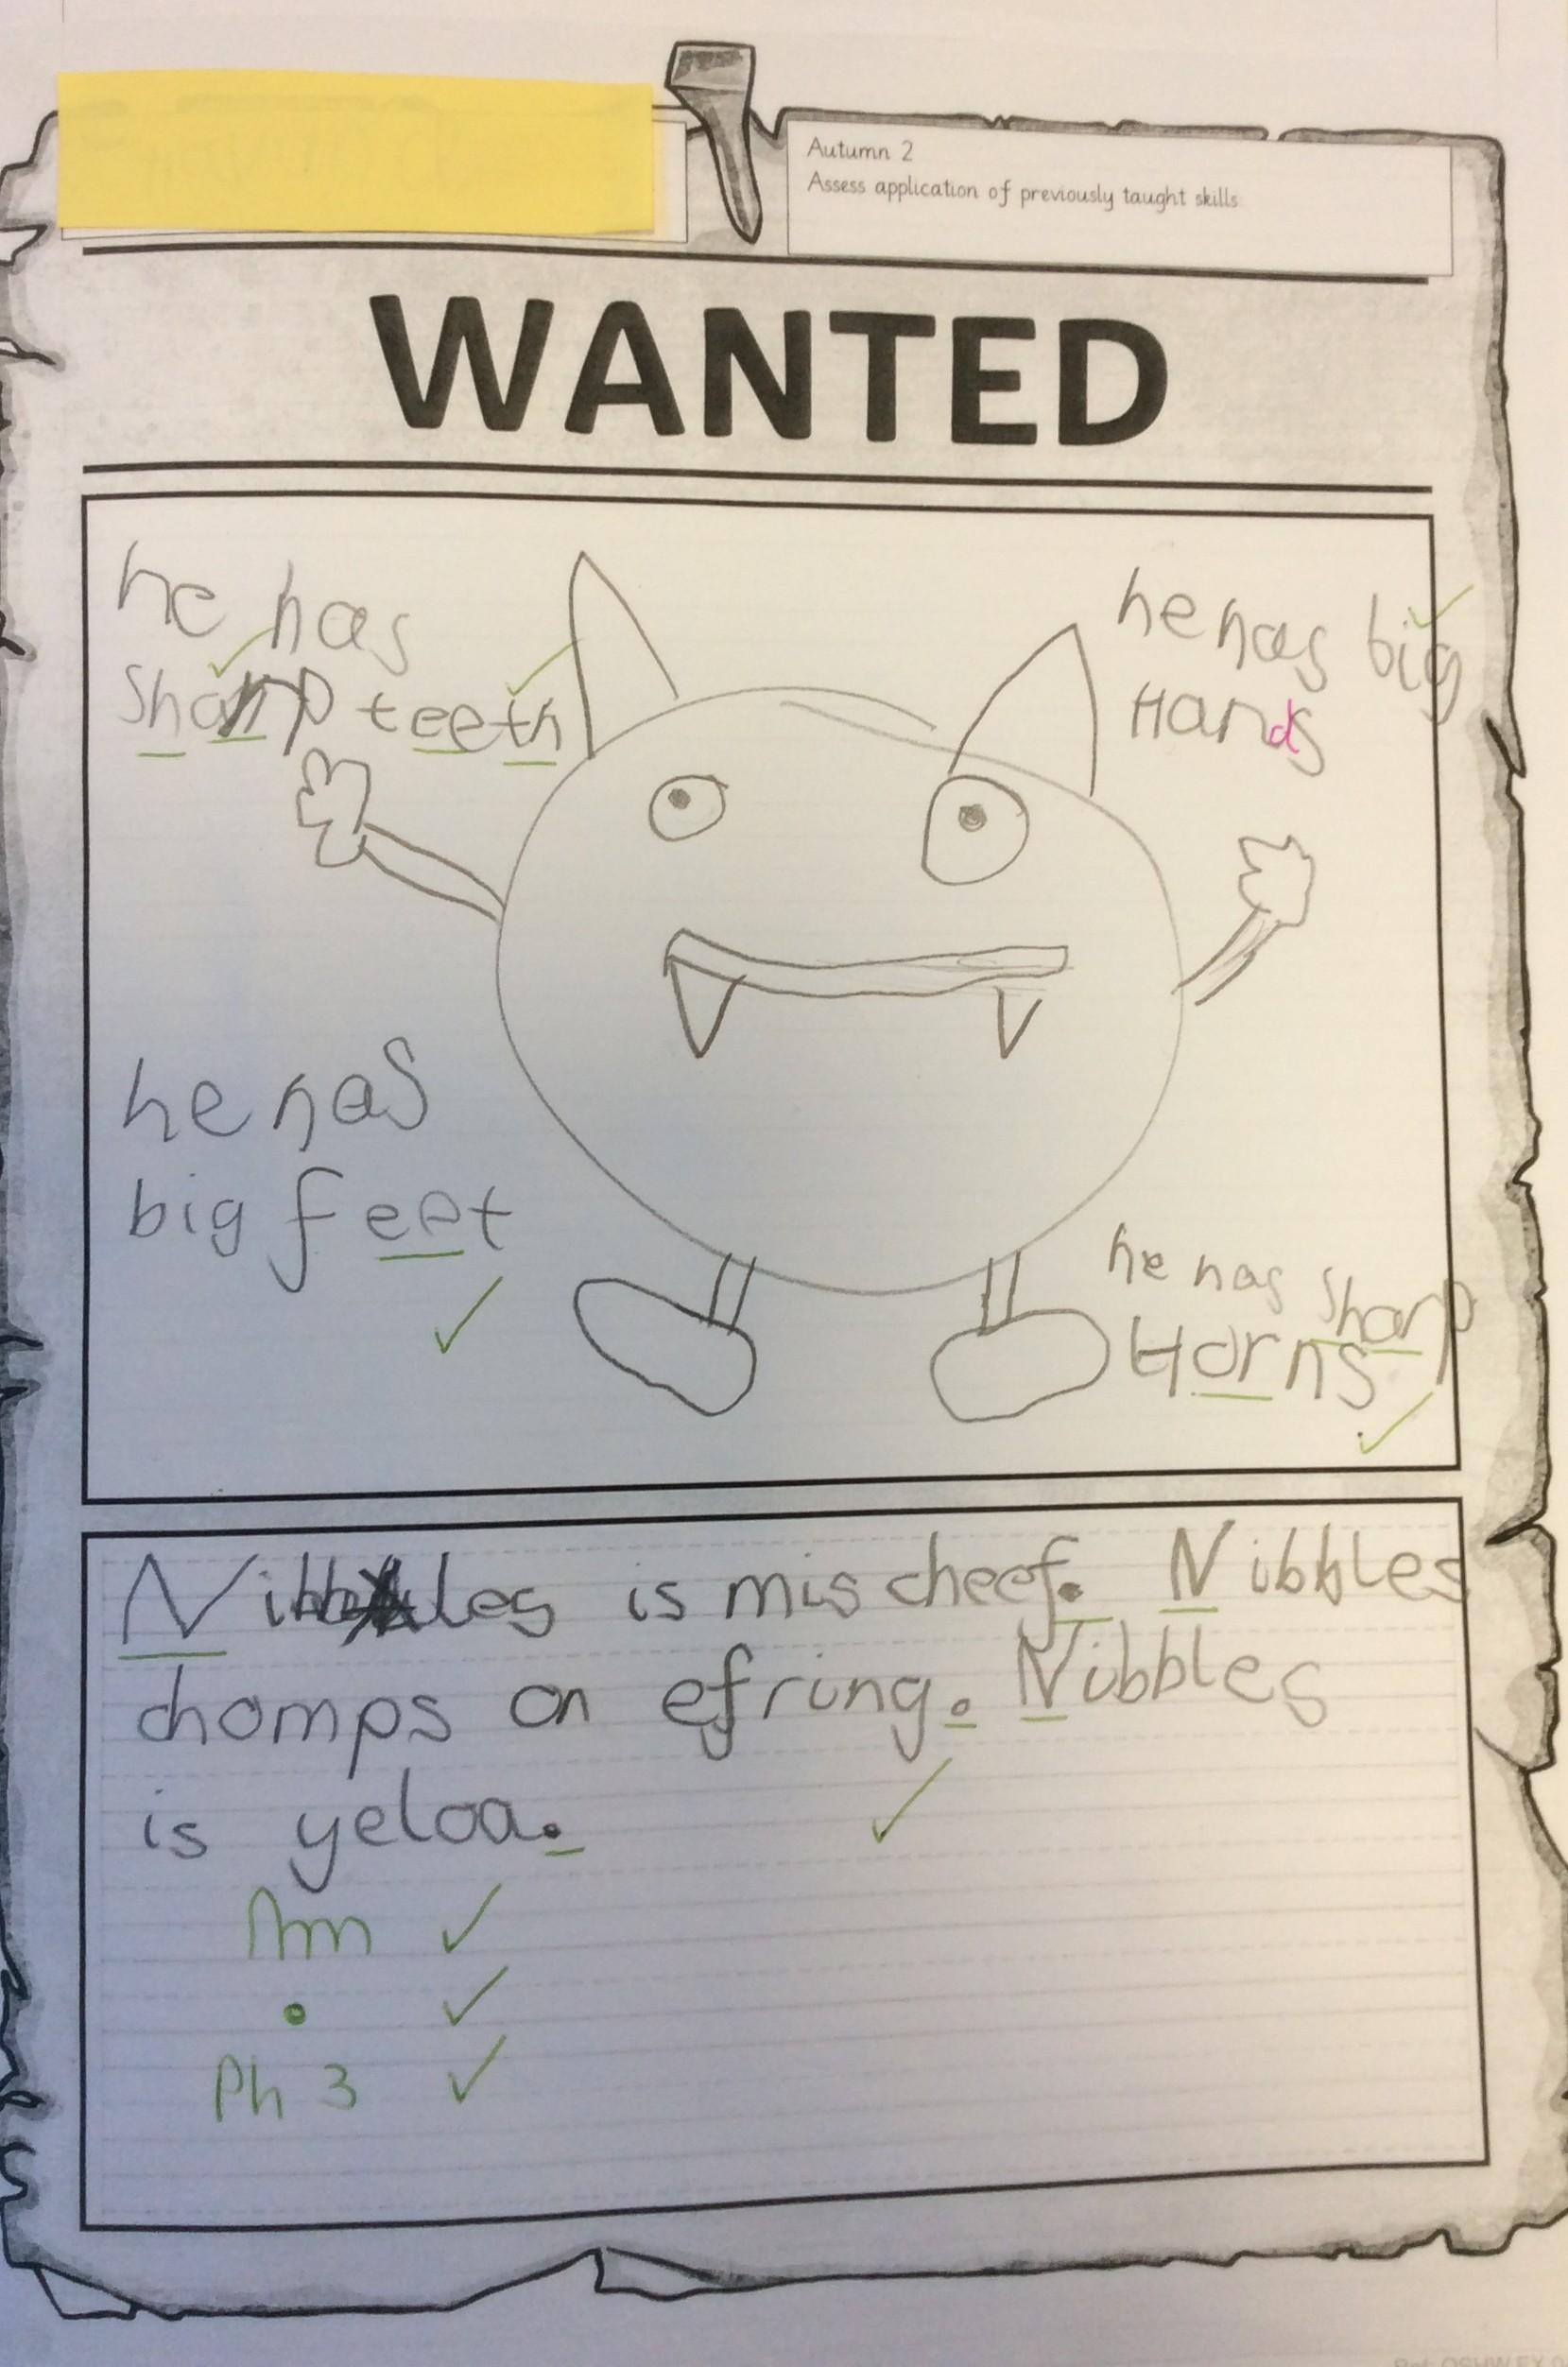 Autumn 2
Assess application of previously taught skills
WANTED
he has
sharp teeth
he has big
Hands
he has
big feet
he has sharp
Horns
Nibbles is mischeef. Nibbles
chomps on efring. Nibbles
is yeloa.
Ph 3